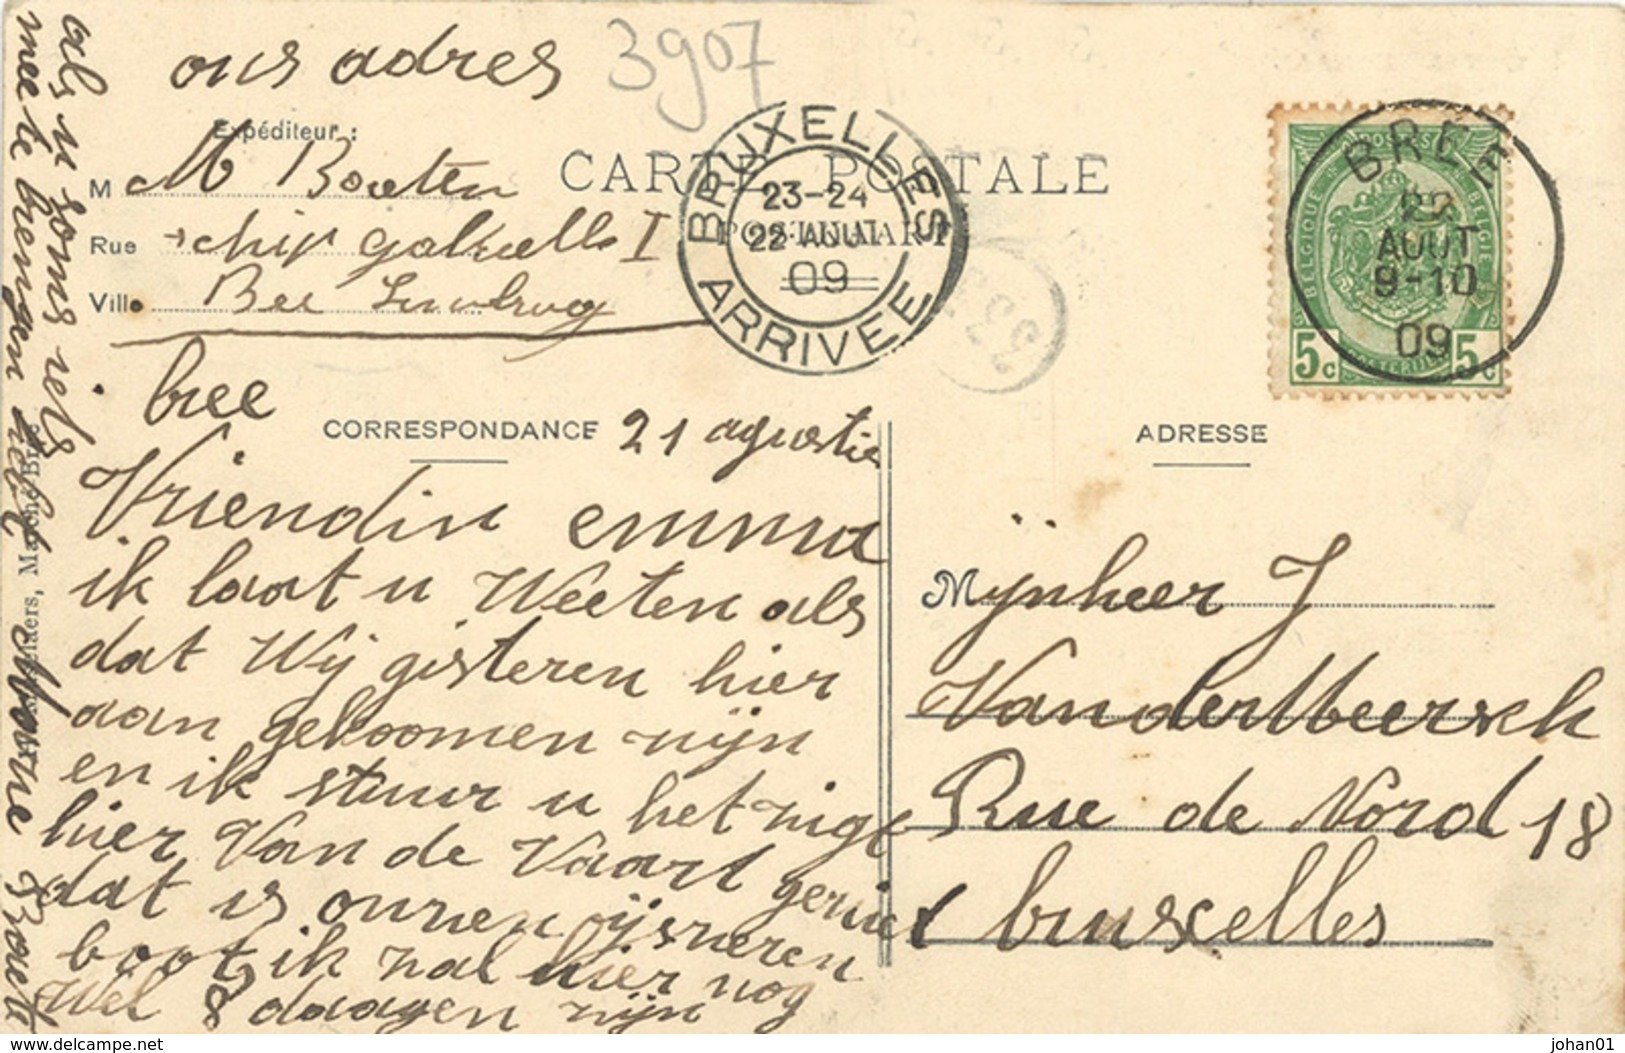 ons adres
3907
Expéditeur :
M M Bouten
Rue schip gabrielle I
Ville Bree Limburg
CARTE POSTALE
POSTKAART
BRUXELLES
23-24
22 AOUT
09
ARRIVEE
BREE
22
AOUT
9-10
09
POSTES
BELGIQUE
BELGIE
POSTERIJEN
5c 5c
bree
CORRESPONDANCE 21 agustie
Vriendin emma
ik laat u Weeten als
dat Wij gisteren hier
aan gekoomen zijn
en ik stuur u het zigt
hier Van de Vaart
dat is onzen ijzeren
boot ik zal hier nog
wel 8 daagen zijn
als u soms iets
mee te brengen hebt
ADRESSE
Mijnheer J
Vandertbeersch
Rue de Nord 18
bruxelles
delcampe.net
johan01